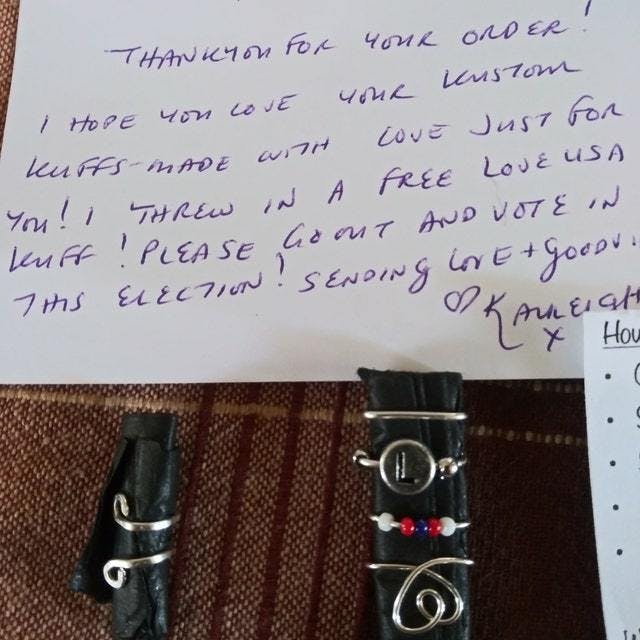 THANKYOU FOR YOUR ORDER!
I HOPE YOU LOVE YOUR KUSTOM
KUFFS-MADE WITH LOVE JUST FOR
YOU! I THREW IN A FREE LOVE USA
KUFF! PLEASE GO OUT AND VOTE IN
THIS ELECTION! SENDING LOVE + GOODV
♡ KAYLEIGH
X
Hou
L